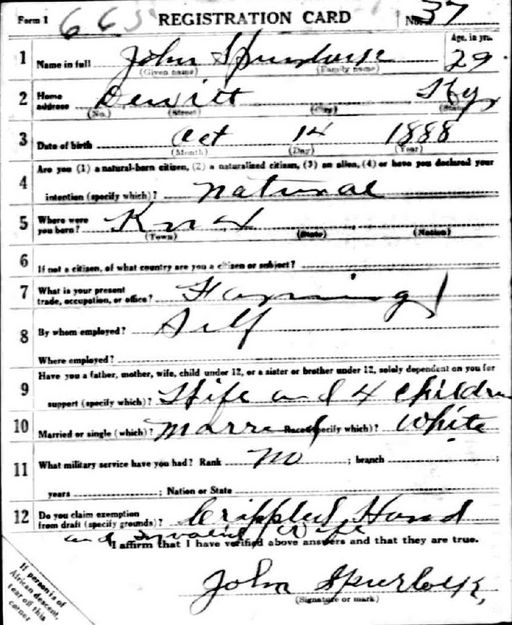 Form 1 665 REGISTRATION CARD No. 37
1 Name in full John Spurlock Age, in yrs. 29
(Given name) (Family name)
2 Home address Dewitt Ky
(No.) (Street) (City) (State)
3 Date of birth Oct 14 1888
(Month) (Day) (Year)
4 Are you (1) a natural-born citizen, (2) a naturalized citizen, (3) an alien, (4) or have you declared your
intention (specify which)? natural
5 Where were you born? Knox
(Town) (State) (Nation)
6 If not a citizen, of what country are you a citizen or subject?
7 What is your present trade, occupation, or office? Farming
8 By whom employed? Self
Where employed?
9 Have you a father, mother, wife, child under 12, or a sister or brother under 12, solely dependent on you for
support (specify which)? Wife and 4 children
10 Married or single (which)? Married Race (specify which)? White
11 What military service have you had? Rank no ; branch
years ; Nation or State
12 Do you claim exemption from draft (specify grounds)? Crippled Hand
and Invalid Wife
I affirm that I have verified above answers and that they are true.
John Spurlock
(Signature or mark)
If person is of African descent, tear off this corner